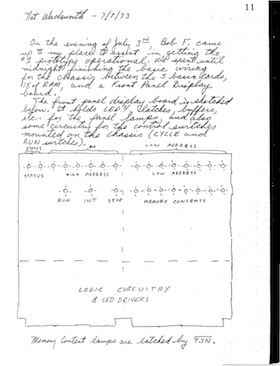 11
Nat Wadsworth - 7/7/73
On the evening of July 3rd Bob F. came
up to my place to assist in getting the
#3 prototype operational. We spent until
midnight finishing the basic wiring
for the chassis, between the 5 basic cards,
1K of RAM, and a Front Panel Display
board.
The front panel display board is sketched
below. It holds LED's, latches, buffers,
etc. for the panel lamps, and also
some circuitry for the control switches
mounted on the chassis (CYCLE and
RUN switches).
STATUS
LOW ADDRESS
STATUS HIGH ADDRESS LOW ADDRESS
RUN INT STOP MEMORY CONTENTS
LOGIC CIRCUITRY
& LED DRIVERS
Memory Content lamps are latched by T3N.